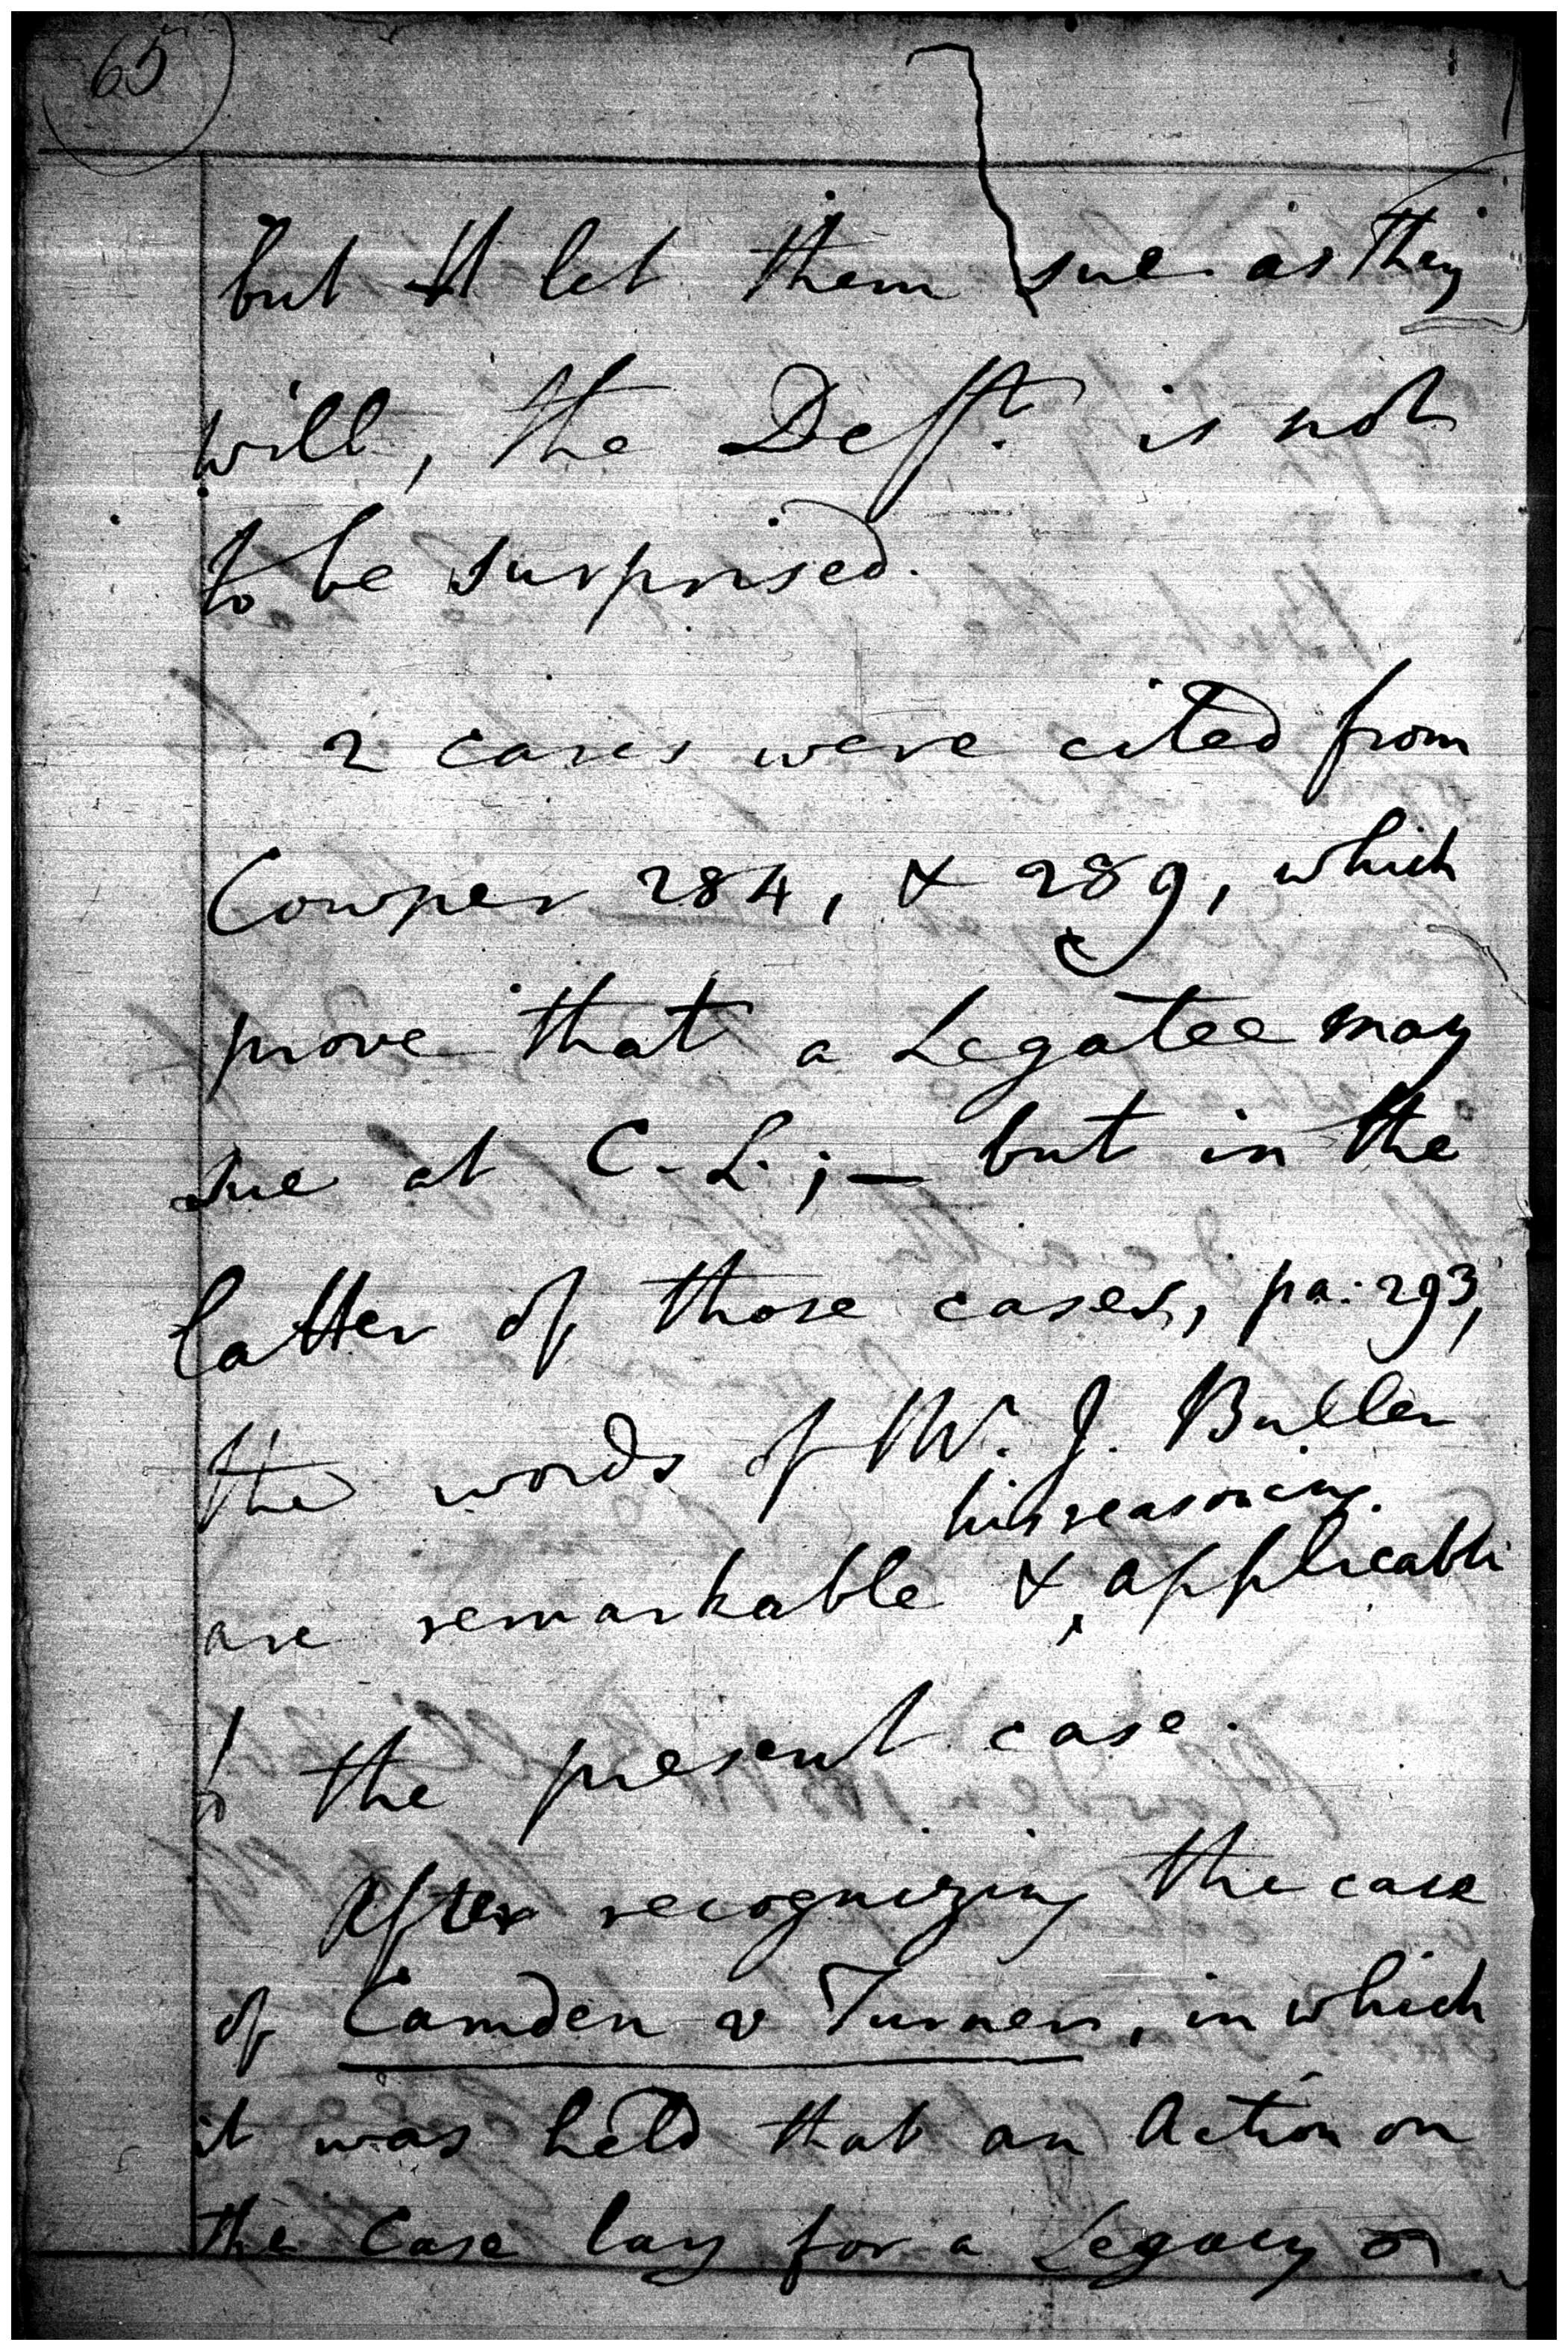 65
but let them sue as they
will, the Defft. is not
to be surprised.
2 cases were cited from
Cowper 284, & 289, which
prove that a Legatee may
sue at C. L.; — but in the
latter of those cases, pa: 293,
the words of W. J. Buller
his reasoning
are remarkable & applicable
to the present case.
After recognizing the case
of Camden v Turner, in which
it was held that an Action on
the Case lay for a Legacy on